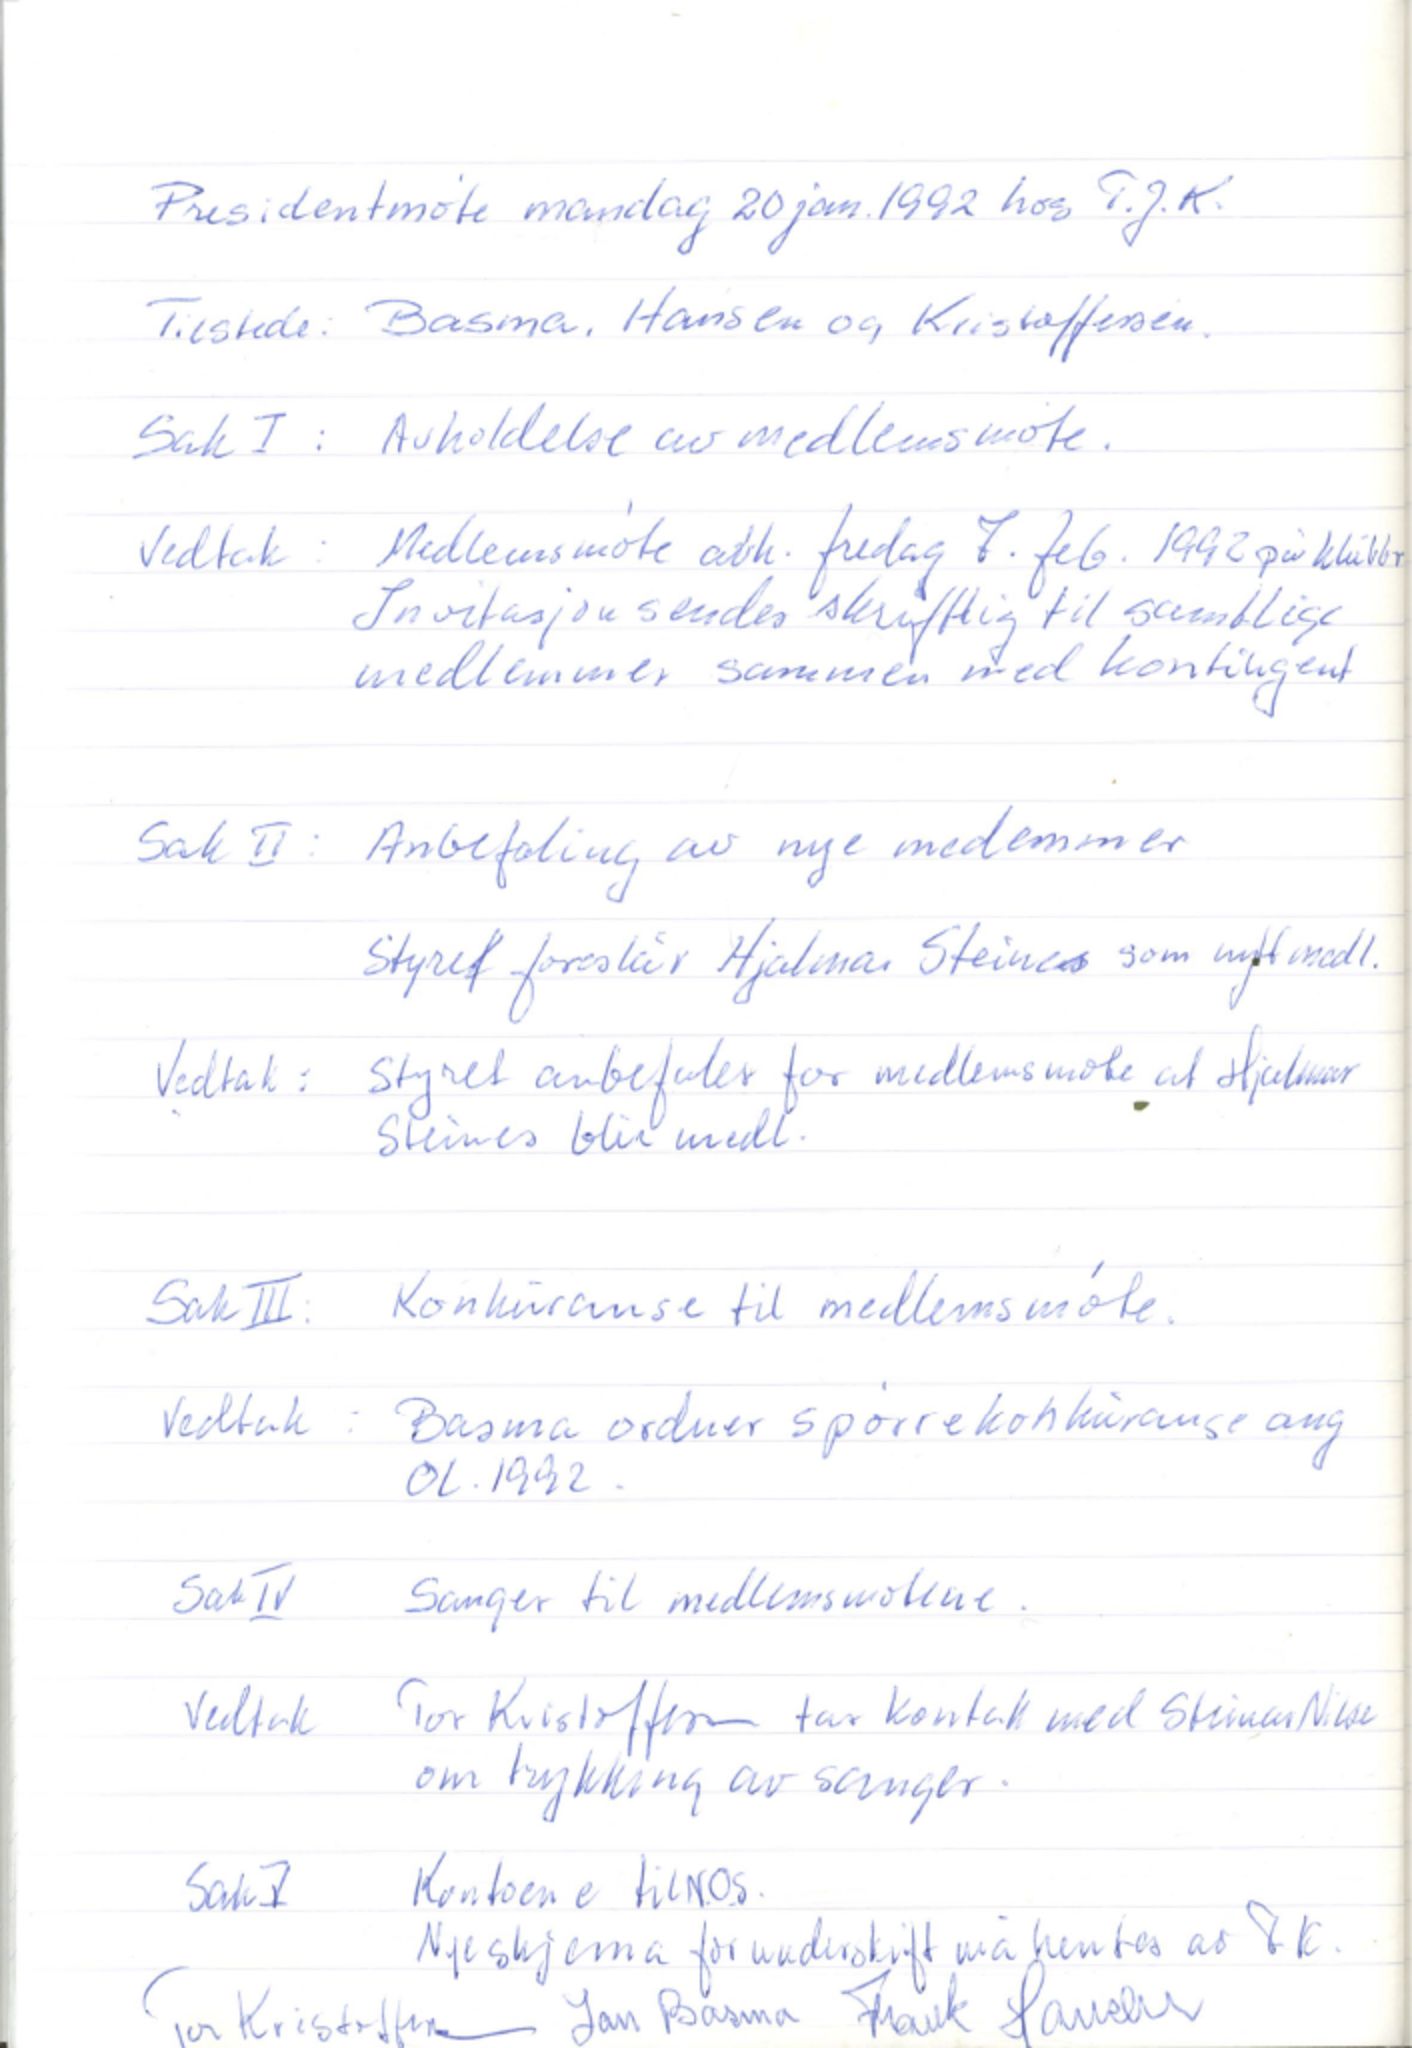 Presidentmöte mandag 20 jan. 1992 hos T.J.K.
Tilstede: Basma, Hansen og Kristoffersen.
Sak I : Avholdelse av medlemsmöte.
Vedtak : Medlemsmöte avh. fredag 7. feb. 1992 på
Invitasjon sendes skriftlig til samtlige
medlemmer sammen med kontingent
Sak II : Anbefaling av nye medemmer
Styret foreslår Hjalmar Steines som nytt medl.
Vedtak : Styret anbefaler for medlemsmöte at Hjalmar
Steines blir medl.
Sak III : Konkuranse til medlemsmöte.
Vedtak : Basma ordner spörrekonkuranse ang
OL. 1992.
Sak IV Sanger til medlemsmötene.
Vedtak Tor Kristoffersen tar kontakt med Steinar
om trykking av sanger.
Sak V Kontoen e til NOS.
Nye skjema for underskift må hentes av T K.
Tor Kristoffersen Jan Basma Frank Hansen